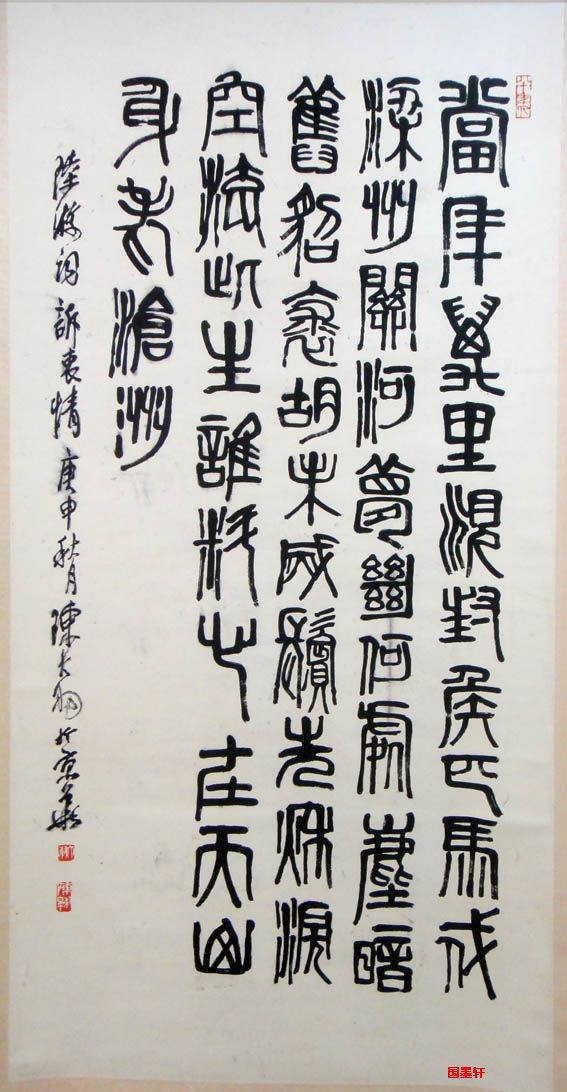 當年萬里覓封侯匹馬戍
梁州關河夢斷何處塵暗
舊貂裘胡未滅鬢先秋淚
空流此生誰料心在天山
身老滄洲
陸游詞訴衷情庚申秋月陳大羽於京華
国墨轩